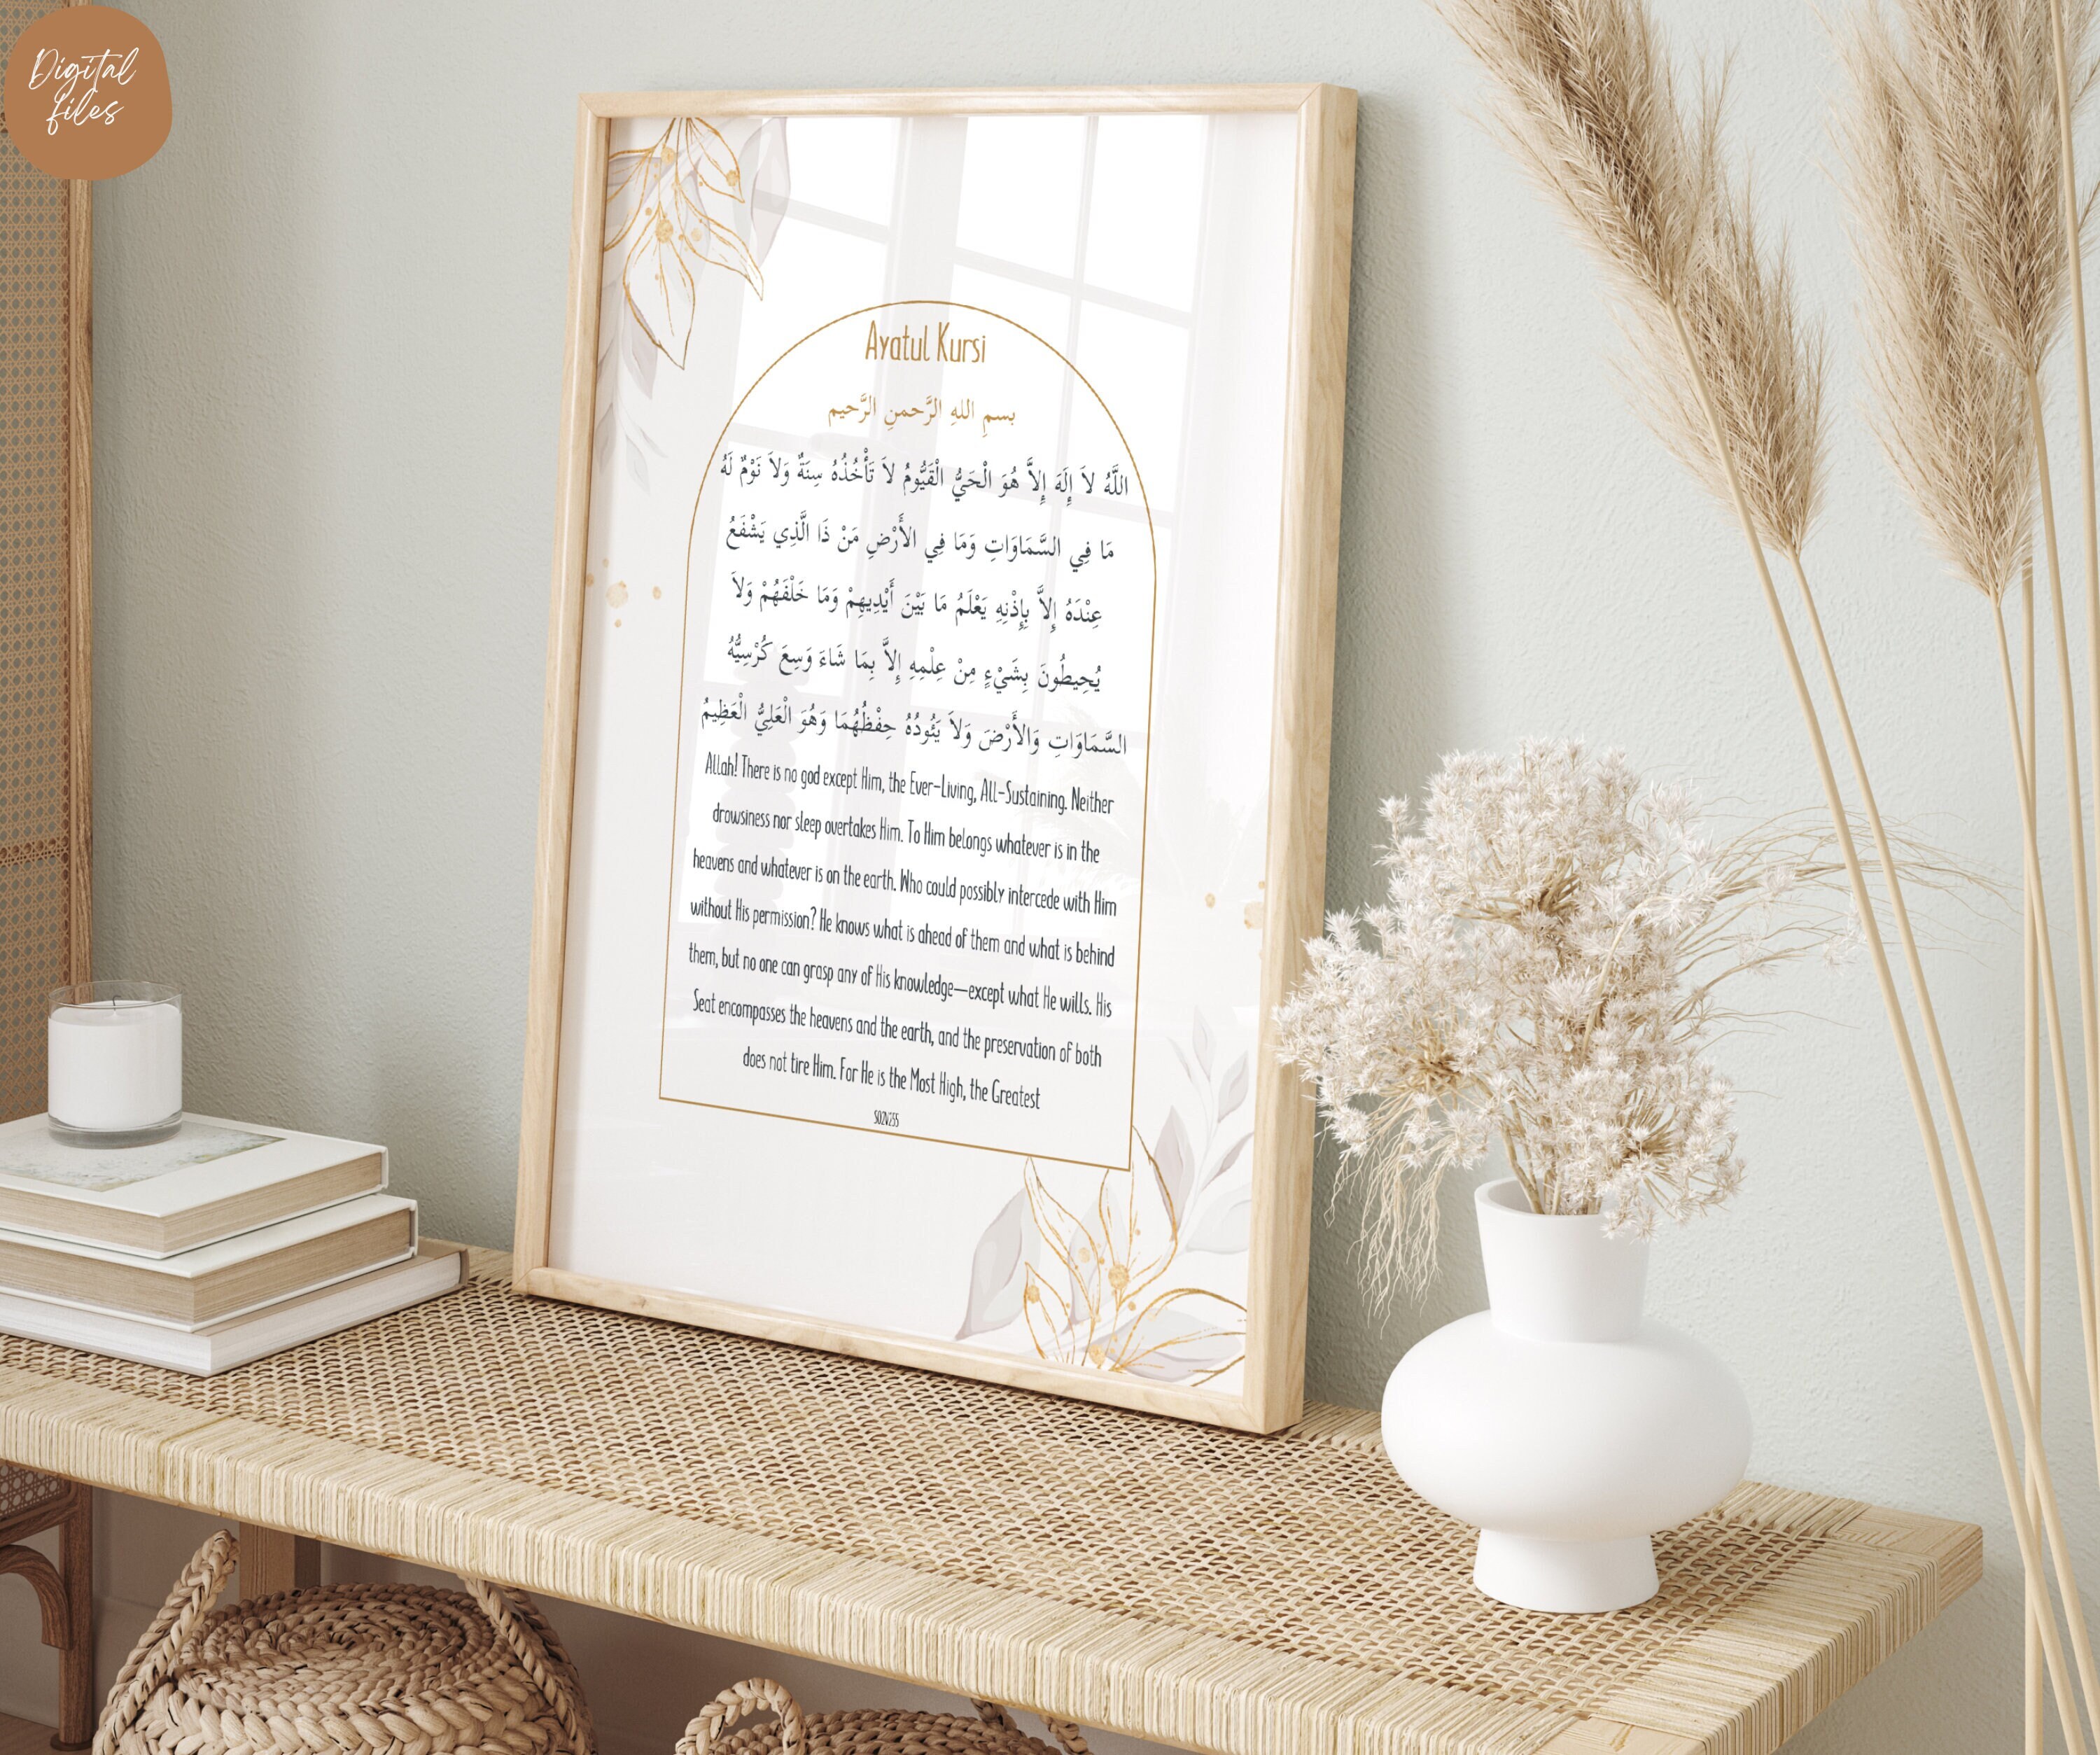 Digital
files
Ayatul Kursi
بسمِ اللهِ الرَّحمنِ الرَّحيم
اللَّهُ لاَ إِلَهَ إِلاَّ هُوَ الْحَيُّ الْقَيُّومُ لاَ تَأْخُذُهُ سِنَةٌ وَلاَ نَوْمٌ لَهُ
مَا فِي السَّمَاوَاتِ وَمَا فِي الأَرْضِ مَنْ ذَا الَّذِي يَشْفَعُ
عِنْدَهُ إِلاَّ بِإِذْنِهِ يَعْلَمُ مَا بَيْنَ أَيْدِيهِمْ وَمَا خَلْفَهُمْ وَلاَ
يُحِيطُونَ بِشَيْءٍ مِنْ عِلْمِهِ إِلاَّ بِمَا شَاءَ وَسِعَ كُرْسِيُّهُ
السَّمَاوَاتِ وَالأَرْضَ وَلاَ يَئُودُهُ حِفْظُهُمَا وَهُوَ الْعَلِيُّ الْعَظِيمُ
Allah! There is no god except Him, the Ever-Living, All-Sustaining. Neither
drowsiness nor sleep overtakes Him. To Him belongs whatever is in the
heavens and whatever is on the earth. Who could possibly intercede with Him
without His permission? He knows what is ahead of them and what is behind
them, but no one can grasp any of His knowledge—except what He wills. His
Seat encompasses the heavens and the earth, and the preservation of both
does not tire Him. For He is the Most High, the Greatest
S02V255